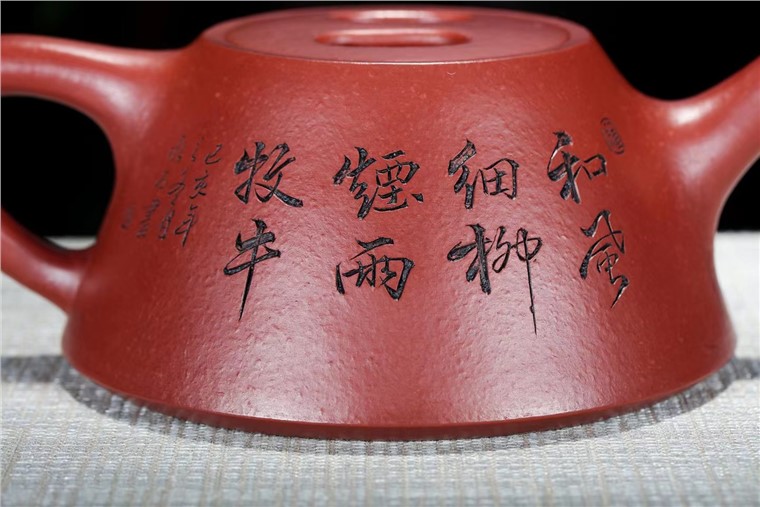 和風
細柳
煙雨
牧牛
己亥年